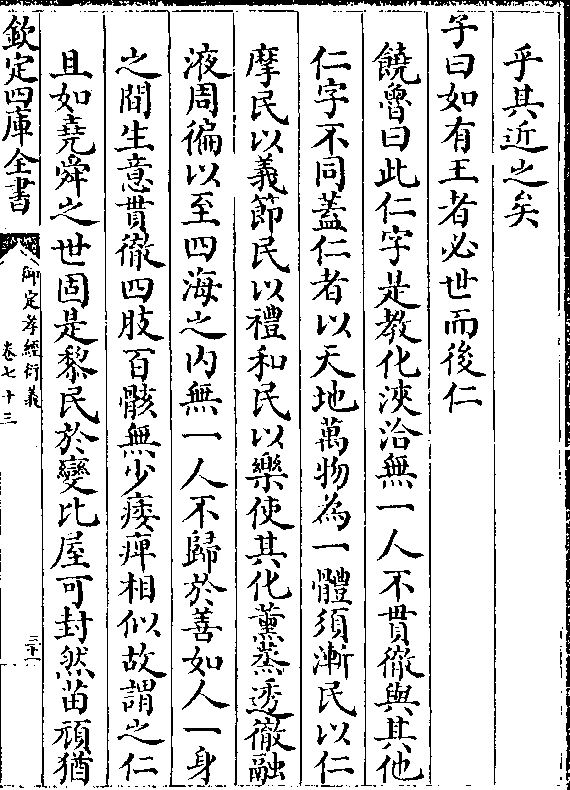 乎其近之矣
子曰如有王者必世而後仁
饒魯曰此仁字是教化浹洽無一人不貫徹與其他
仁字不同蓋仁者以天地萬物為一體須漸民以仁
摩民以義節民以禮和民以樂使其化薰蒸透徹融
液周徧以至四海之内無一人不歸於善如人一身
之間生意貫徹四肢百骸無少痿痺相似故謂之仁
且如堯舜之世固是黎民於變比屋可封然苗頑猶
欽定四庫全書
御定孝經衍義
卷七十三
三十一